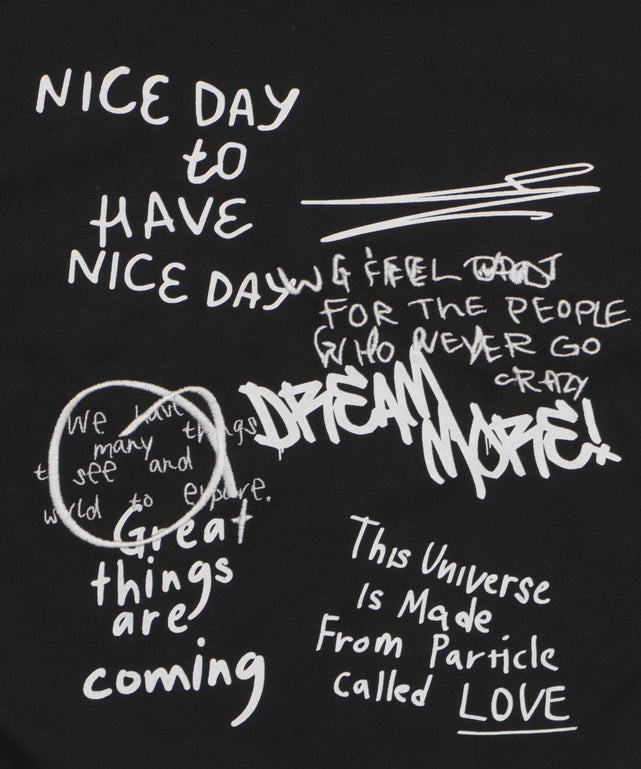 NICE DAY
to
HAVE
NICE DAY
WE FEEL
FOR THE PEOPLE
WHO NEVER GO
CRAZY
DREAM
MORE!
We have
many things
t see and
world to expore.
Great
things
are
coming
This Universe
Is Made
From Particle
called LOVE